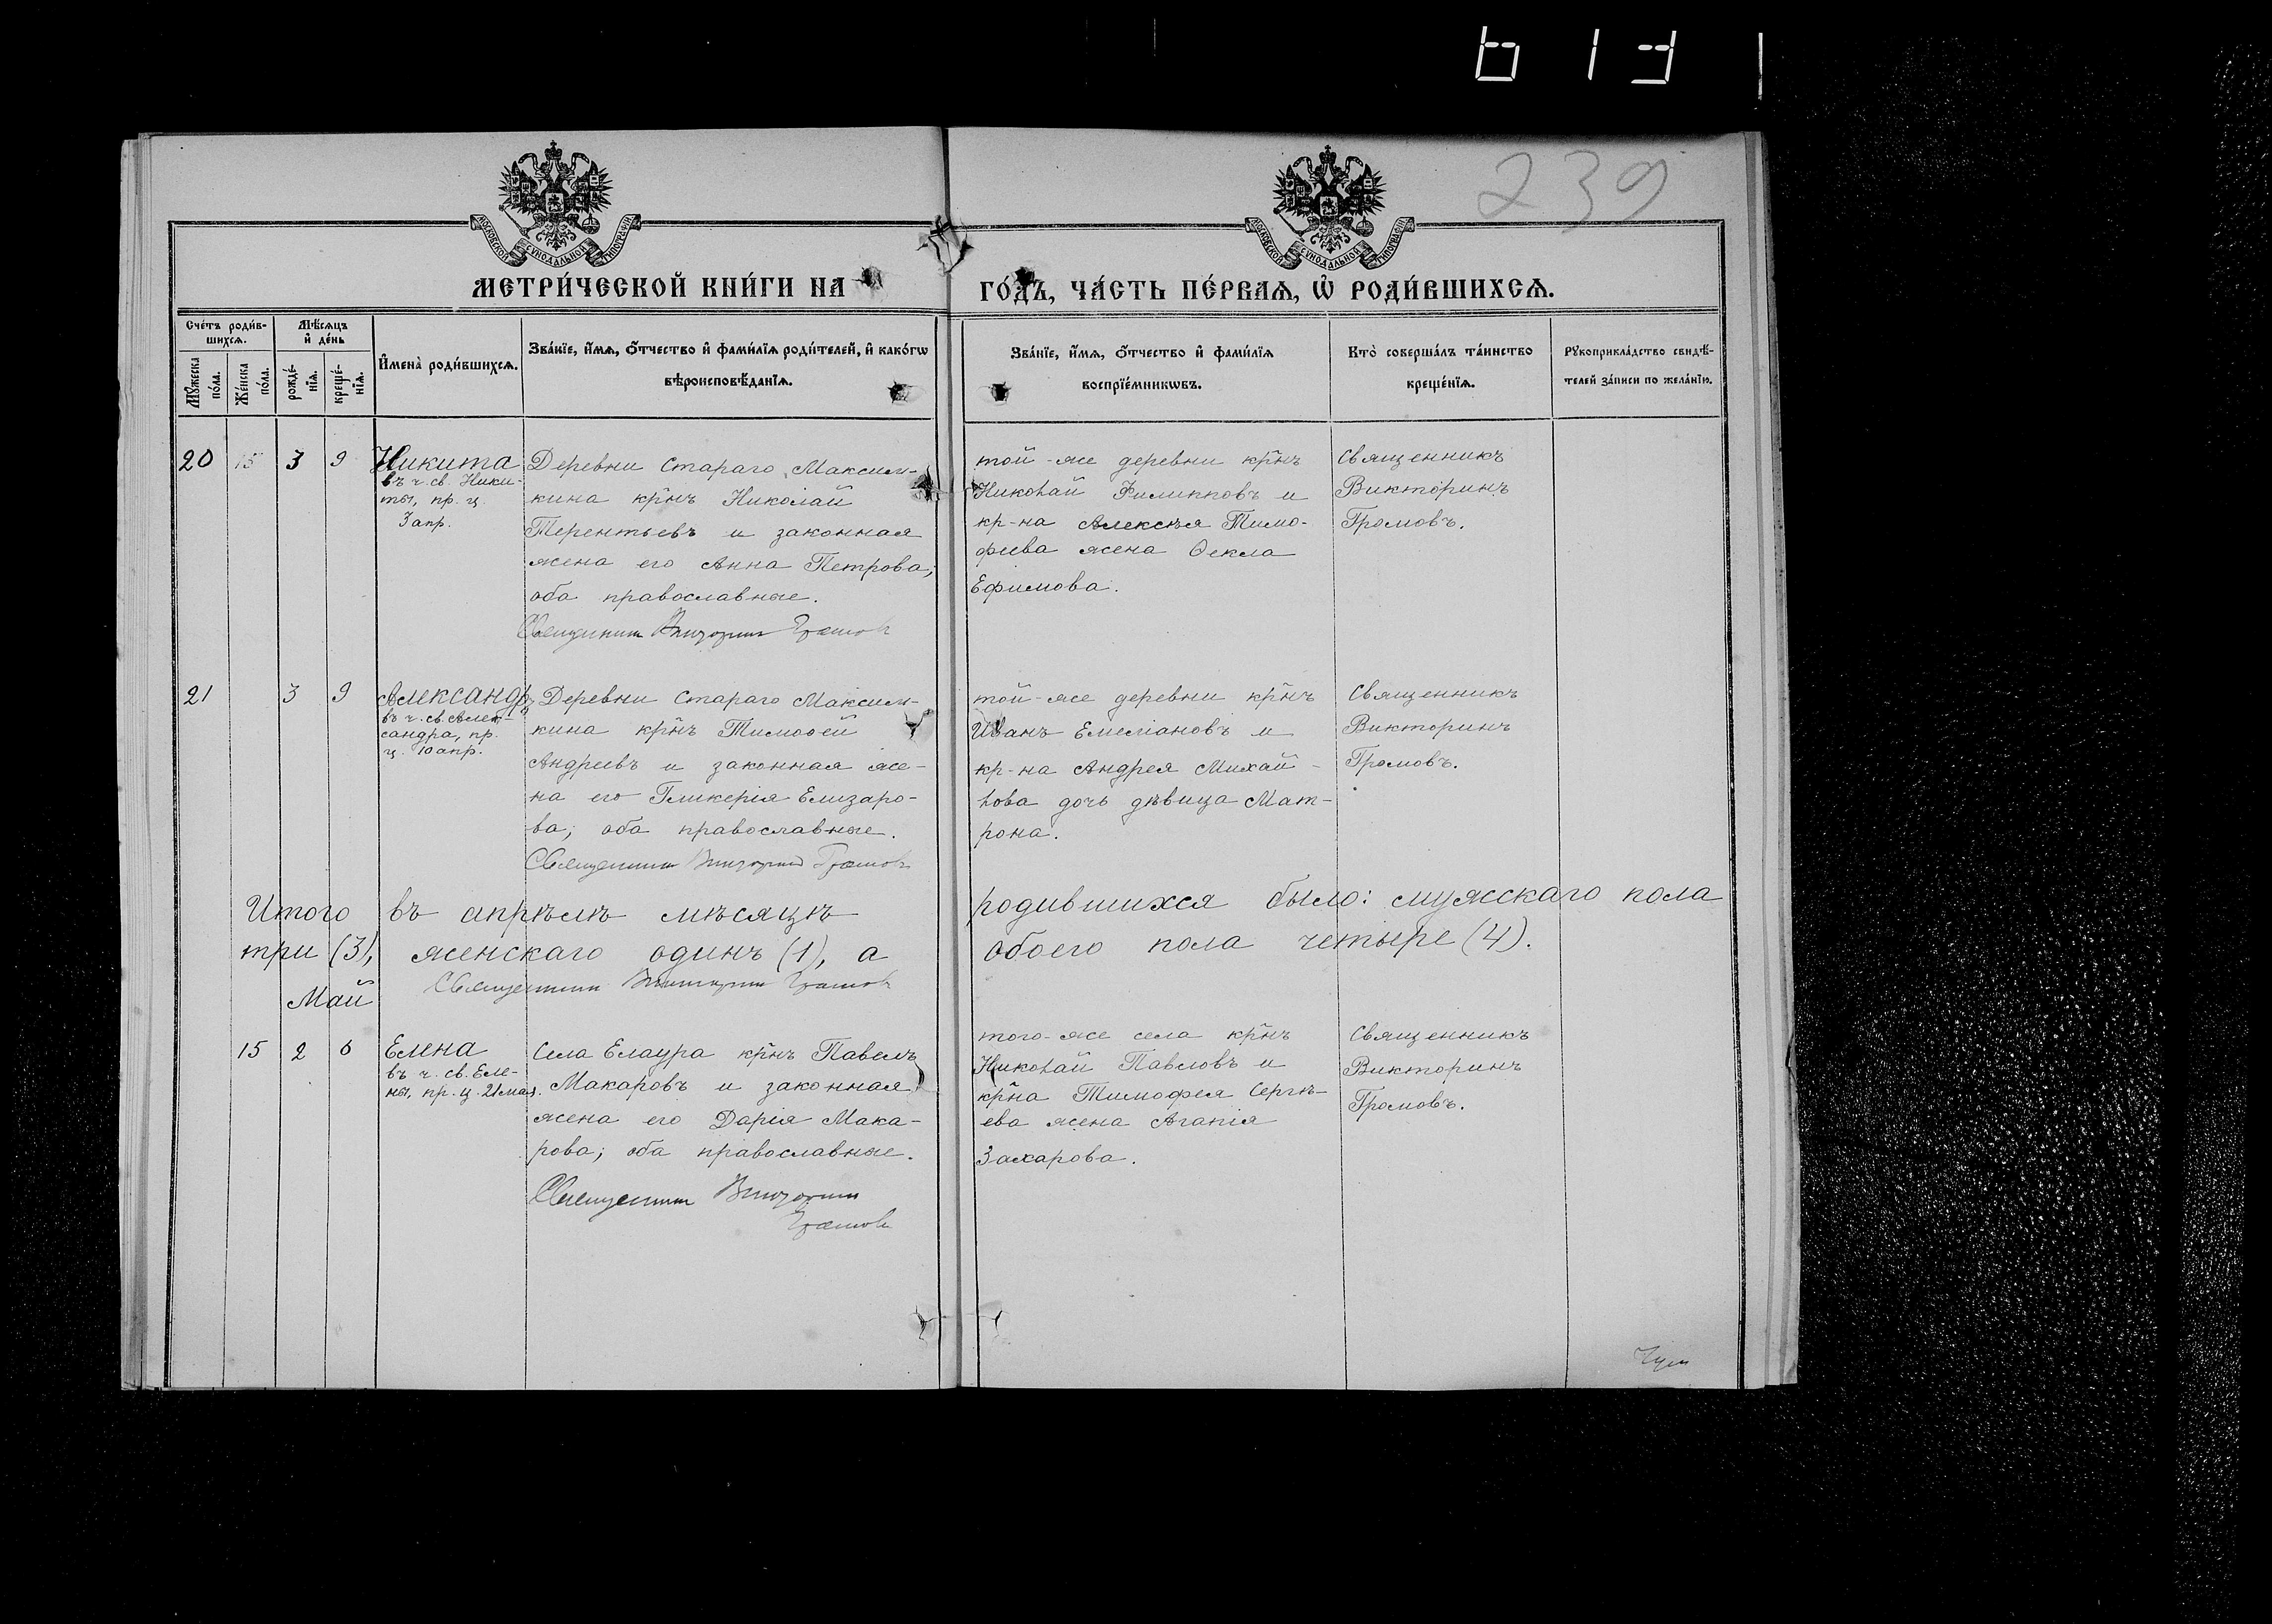 239
МОСКОВСКОЙ СѴНОДАЛЬНОЙ ТИПОГРАФІИ
МОСКОВСКОЙ СѴНОДАЛЬНОЙ ТИПОГРАФІИ
МЕТРИ́ЧЕСКОЙ КНИ́ГИ НА
ГО́ДЪ, ЧА́СТЬ ПЕ́РВАѦ, Ѡ҆ РОДИ́ВШИХСѦ.
Сче́тъ роди́в-
шихсѧ.
Мꙋ́жеска
по́ла.
Же́нска
по́ла.
Мѣ́сѧцъ
и҆ де́нь
рожде́-
нїѧ.
креще́-
нїѧ.
И҆мена̀ роди́вшихсѧ.
Зва́нїе, и҆́мѧ, ѻ҆́тчество и҆ фами́лїѧ роди́телей, и҆ како́гѡ
вѣроисповѣ́данїѧ.
Зва́нїе, и҆́мѧ, ѻ҆́тчество и҆ фами́лїѧ
воспрїе́мникѡвъ.
Кто̀ соверша́лъ та́инство
креще́нїѧ.
Рꙋкоприкла́дство свидѣ́-
телей за́писи по жела́нїю.
20 15 3 9
Никита
въ ч. св. Ники-
ты, пр. ц.
3 апр.
Деревни Стараго Максим-
кина кр̃нъ Николай
Терентьевъ и законная
жена его Анна Петрова;
оба православные.
Священникъ Викторинъ Громовъ
той-же деревни кр̃нъ
Николай Филипповъ и
кр-на Алексѣя Тимо-
феева жена Ѳекла
Ефимова.
Священникъ
Викторинъ
Громовъ.
21 3 9
Александръ
въ ч. св. Алек-
сандра, пр.
ц. 10 апр.
Деревни Стараго Максим-
кина кр̃нъ Тимоѳей
Андреевъ и законная же-
на его Гликерія Елизаро-
ва; оба православные.
Священникъ Викторинъ Громовъ
той-же деревни кр̃нъ
Иванъ Емеліановъ и
кр-на Андрея Михай-
лова дочь дѣвица Мат-
рона.
Священникъ
Викторинъ
Громовъ.
Итого въ апрѣлѣ мѣсяцѣ родившихся было: мужскаго пола
три (3), женскаго одинъ (1), а обоего пола четыре (4).
Священникъ Викторинъ Громовъ
Май
15 2 6
Елена
въ ч. св. Еле-
ны, пр. ц. 21 мая.
Села Елаура кр̃нъ Павелъ
Макаровъ и законная
жена его Дарія Мака-
рова; оба православные.
Священникъ Викторинъ
Громовъ
того-же села кр̃нъ
Николай Павловъ и
кр̃на Тимофея Сергѣ-
ева жена Агапія
Захарова.
Священникъ
Викторинъ
Громовъ.